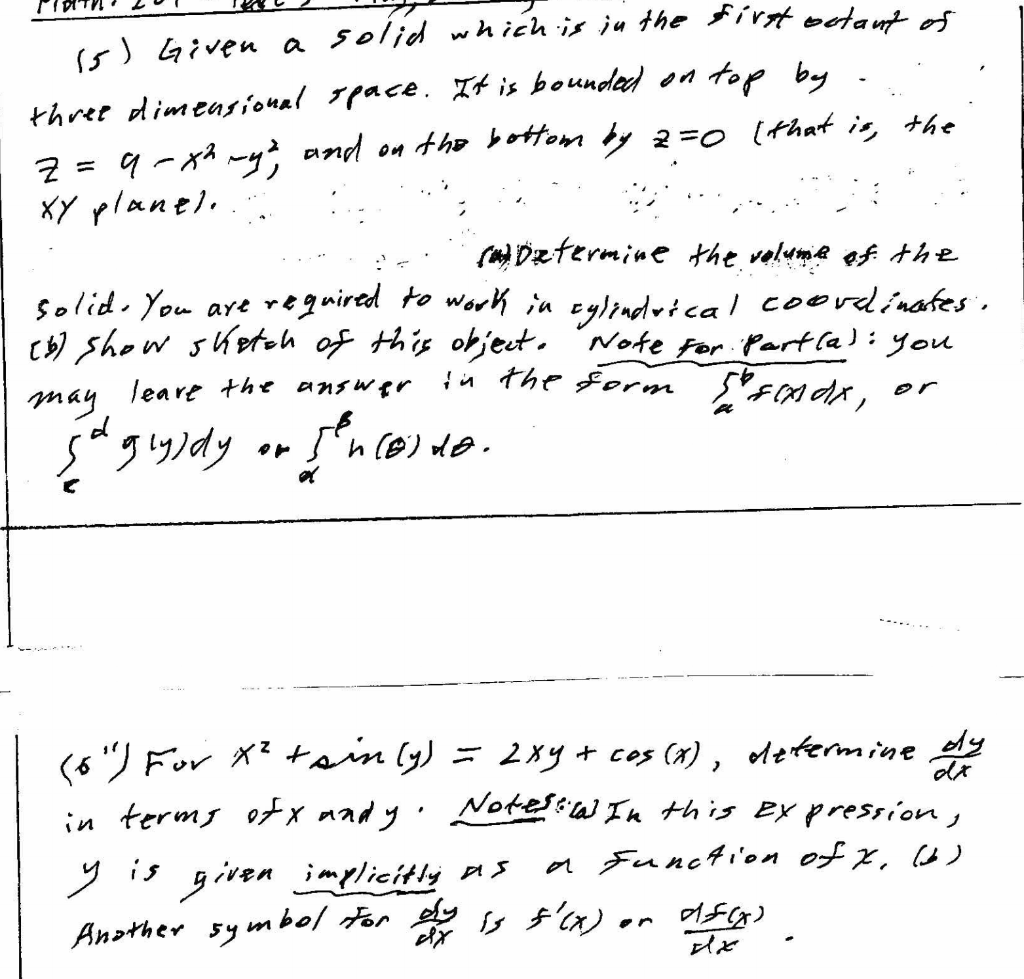 (5) Given a solid which is in the first octant of
three dimensional space. It is bounded on top by
z = 9 - x² - y², and on the bottom by z=0 (that is, the
XY plane).
(a) Determine the volume of the
solid. You are required to work in cylindrical coordinates.
(b) Show sketch of this object. Note for Part(a): you
may leave the answer in the form ∫ₐᵇ f(x)dx, or
∫_c^d g(y)dy or ∫_α^β h(θ)dθ.
(6") For x² + sin(y) = 2xy + cos(x), determine dy/dx
in terms of x and y. Notes: (a) In this expression,
y is given implicitly as a function of x, (b)
Another symbol for dy/dx is f'(x) or df(x)/dx.